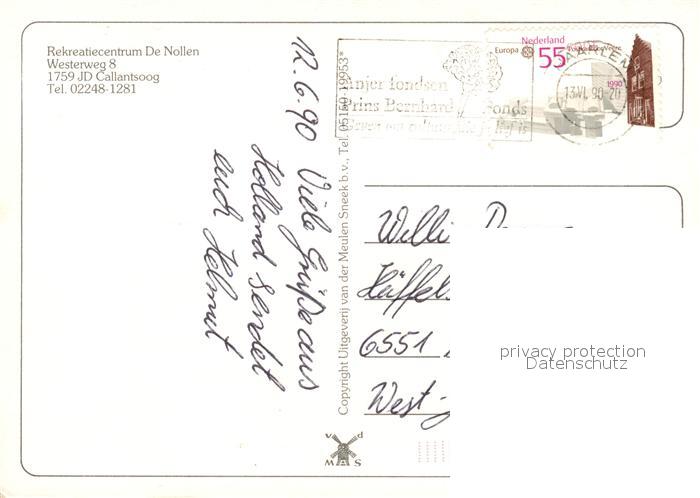 Rekreatiecentrum De Nollen
Westerweg 8
1759 JD Callantsoog
Tel. 02248-1281
12.6.90 Viele Grüße aus
Holland sendet
euch Helmut
Copyright Uitgeverij van der Meulen Sneek b.v., Tel. 05150-19953*
Anjer fondsen
Prins Bernhard Fonds
Geven om cultuur
Nederland
Europa 55
1990
HAARLEM
13.VI.90-20
Willi
6551
West-
v d
M A S
privacy protection
Datenschutz